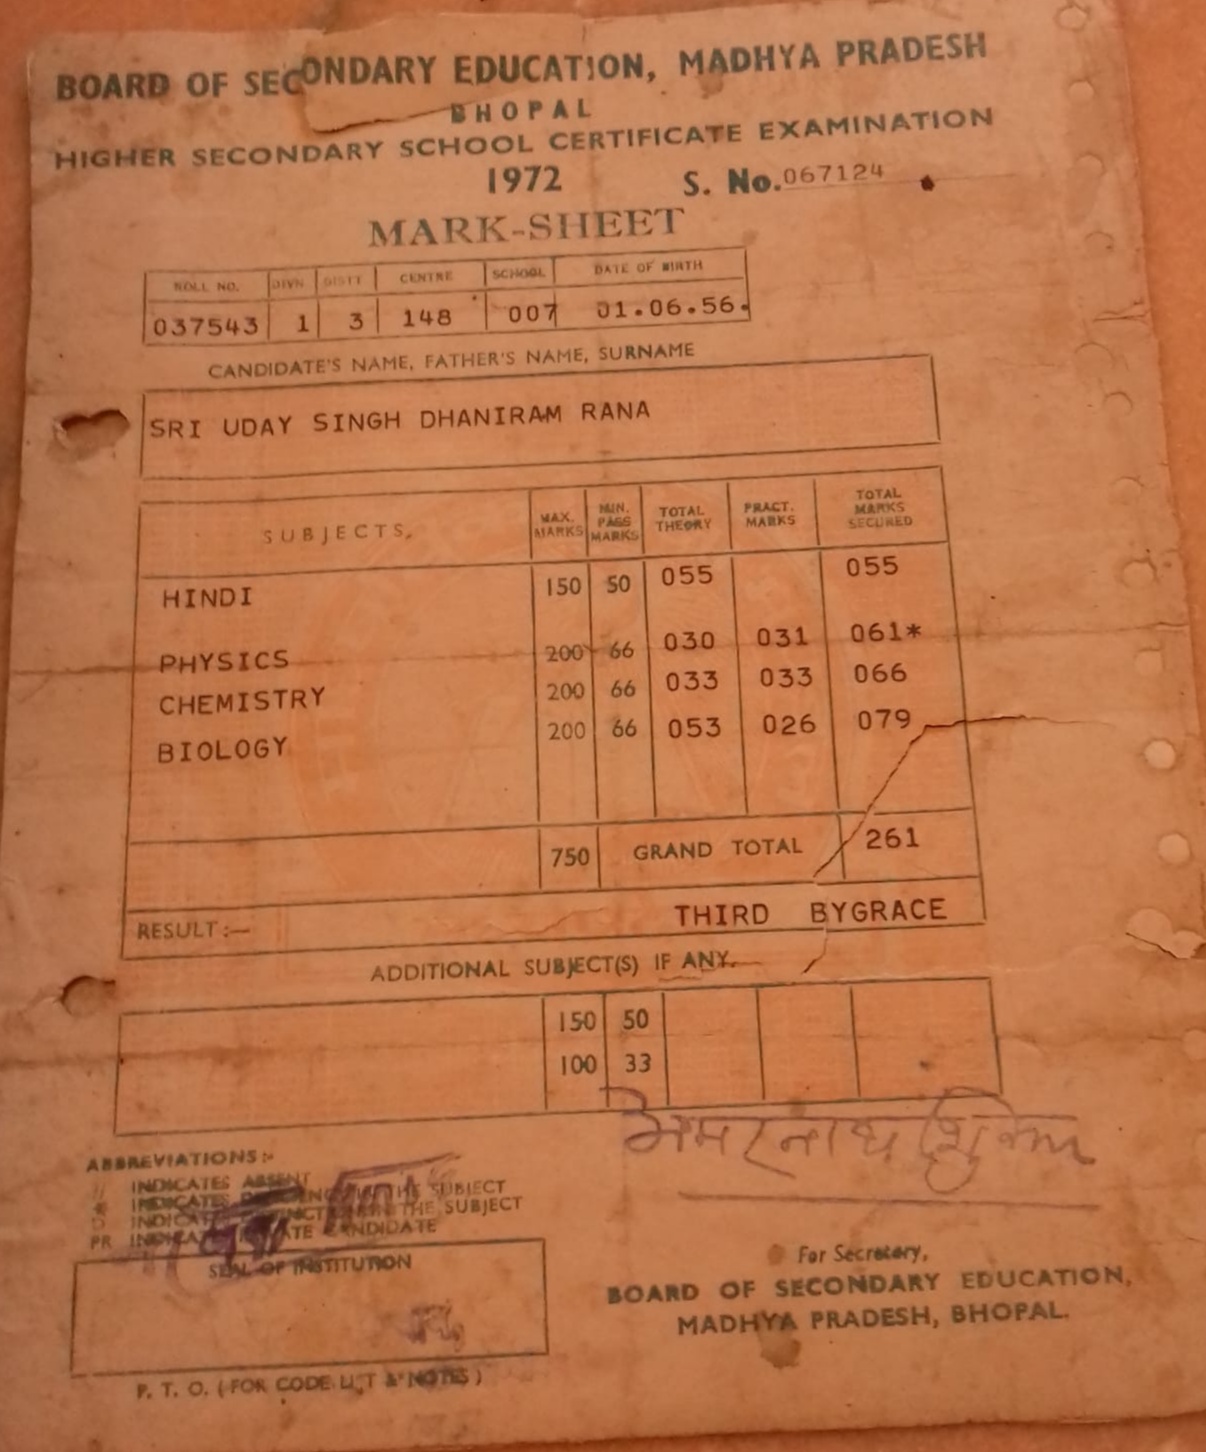 BOARD OF SECONDARY EDUCATION, MADHYA PRADESH
BHOPAL
HIGHER SECONDARY SCHOOL CERTIFICATE EXAMINATION
1972 S. No. 067124
MARK-SHEET
ROLL NO. DIVN DISTT CENTRE SCHOOL DATE OF BIRTH
037543 1 3 148 007 01.06.56.
CANDIDATE'S NAME, FATHER'S NAME, SURNAME
SRI UDAY SINGH DHANIRAM RANA
SUBJECTS, MAX. MARKS MIN. PASS MARKS TOTAL THEORY PRACT. MARKS TOTAL MARKS SECURED
HINDI 150 50 055 055
PHYSICS 200 66 030 031 061*
CHEMISTRY 200 66 033 033 066
BIOLOGY 200 66 053 026 079
750 GRAND TOTAL 261
RESULT :— THIRD BYGRACE
ADDITIONAL SUBJECT(S) IF ANY.
150 50
100 33
अमरनाथ शुक्ल
ABBREVIATIONS :-
// INDICATES ABSENT
* INDICATES THE SUBJECT
D INDICATES THE SUBJECT
PR CANDIDATE
SEAL OF INSTITUTION
For Secretary,
BOARD OF SECONDARY EDUCATION,
MADHYA PRADESH, BHOPAL.
P. T. O. (FOR CODE LIST & NOTES)